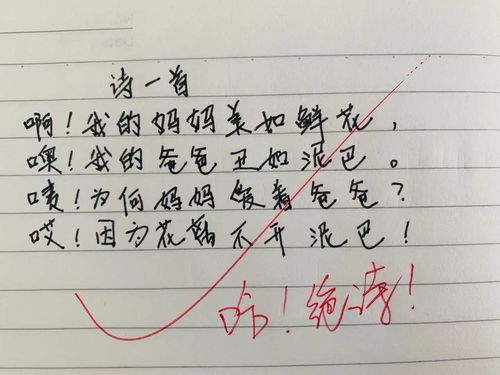 诗一首
啊！我的妈妈美如鲜花，
噢！我的爸爸丑如泥巴。
咦！为何妈妈着爸爸？
哎！因为花离不开泥巴！
哈！绝诗！